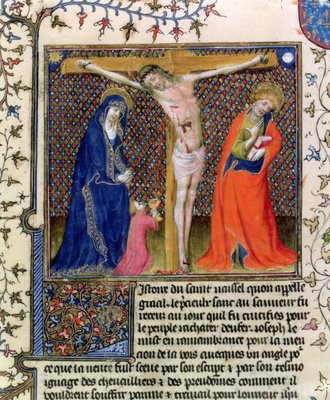 Istoire du saint vaissel quon appelle
graal. le precieux sanc au sauueur fu
receu au iour quil fu crucifies pour
le peuple rachater denfer. Joseph le
mist en remambrance pour la men
cion de la vois auecques un angle po
ce que la uerite fust sceue par son escript & par son tesmo
ignage des cheualliers & des preudomes comment il
vouldrent souffrir paine & trauail pour